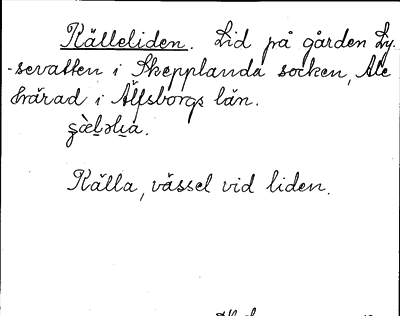 Källeliden. Lid på gården Ly-
-sevatten i Skepplanda socken, Ale
härad i Älfsborgs län.
Källa, vässel vid liden.